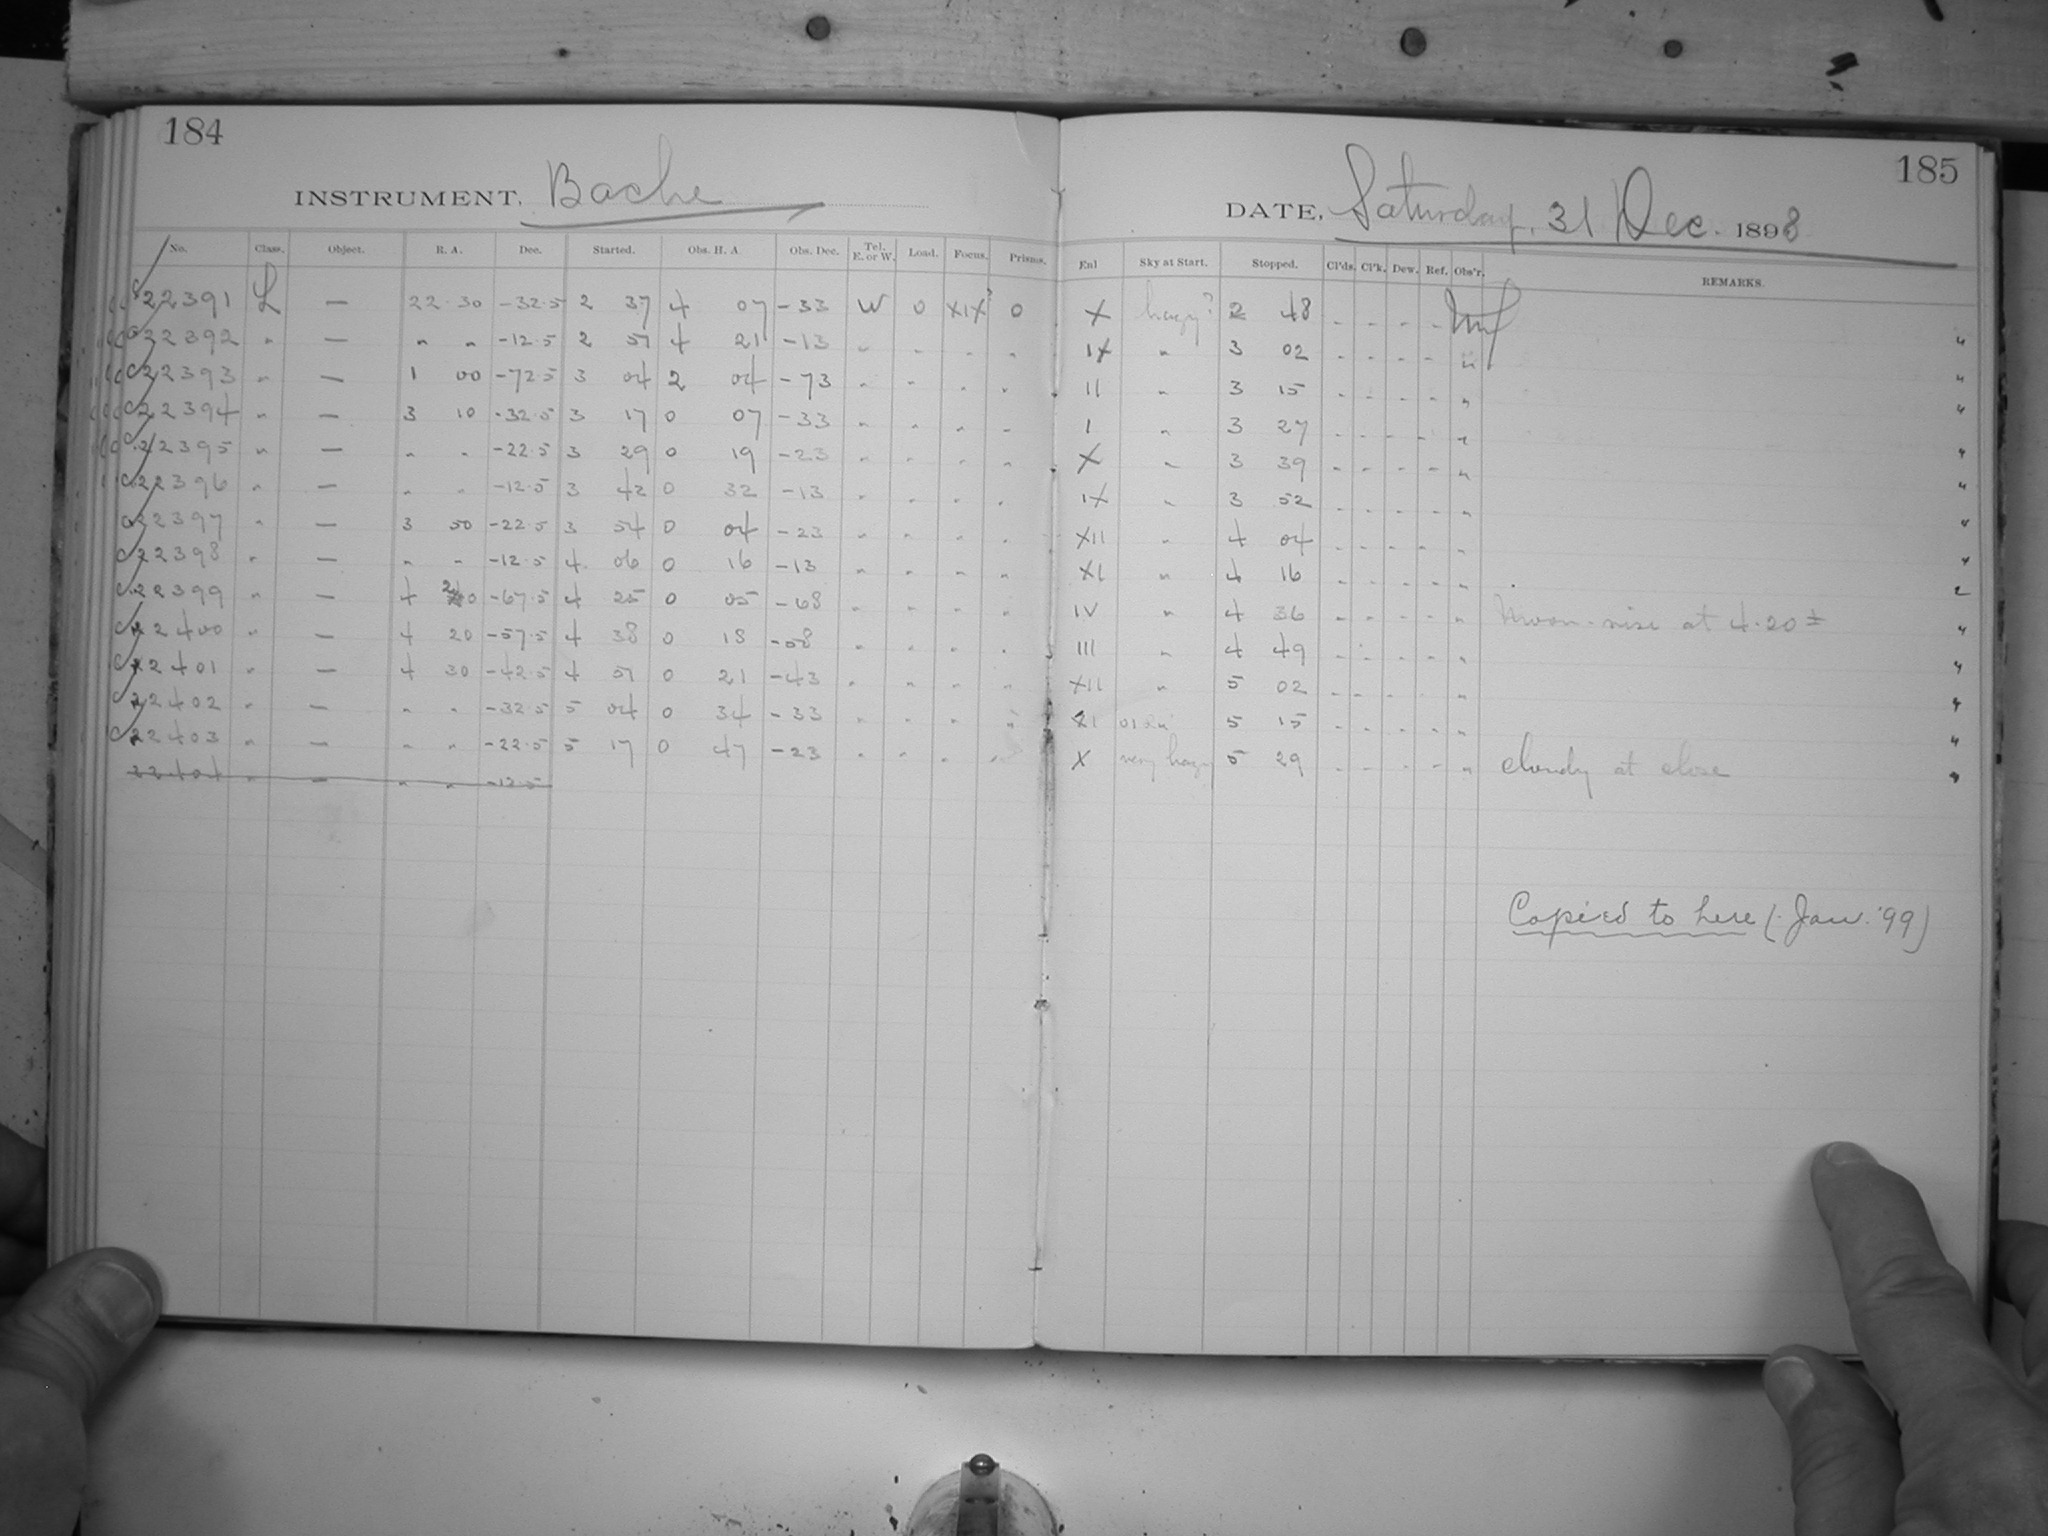 184
INSTRUMENT, Bache
No. Class. Object. R. A. Dec. Started. Obs. H. A Obs. Dec. Tel. E. or W. Load. Focus. Prisms.
22391 L — 22 30 -32.5 2 37 4 07 -33 W 0 XIX? 0
22392 " — " " -12.5 2 51 4 21 -13 " " " "
22393 " — 1 00 -72.5 3 04 2 04 -73 " " " "
22394 " — 3 10 -32.5 3 17 0 07 -33 " " " "
22395 " — " " -22.5 3 29 0 19 -23 " " " "
22396 " — " " -12.5 3 42 0 32 -13 " " " "
22397 " — 3 50 -22.5 3 54 0 04 -23 " " " "
22398 " — " " -12.5 4 06 0 16 -13 " " " "
22399 " — 4 20 -67.5 4 25 0 05 -68 " " " "
22400 " — 4 20 -57.5 4 38 0 18 -58 " " " "
22401 " — 4 30 -42.5 4 51 0 21 -43 " " " "
22402 " — " " -32.5 5 04 0 34 -33 " " " "
22403 " — " " -22.5 5 17 0 47 -23 " " " "
22404 " — " " -12.5
185
DATE, Saturday, 31 Dec. 1898
Enl Sky at Start. Stopped. Cl'ds. Cl'k. Dew. Ref. Obs'r. REMARKS.
X hazy? 2 48 - - - -
IX " 3 02 - - - - " "
II " 3 15 - - - - " "
I " 3 27 - - - - " "
X " 3 39 - - - - " "
IX " 3 52 - - - - " "
XII " 4 04 - - - - " "
XI " 4 16 - - - - " "
IV " 4 36 - - - - " Moon-rise at 4.20± "
III " 4 49 - - - - " "
XII " 5 02 - - - - " "
XI 5 15 - - - - " "
X very hazy 5 29 - - - - " cloudy at close "
Copied to here (Jan. '99)